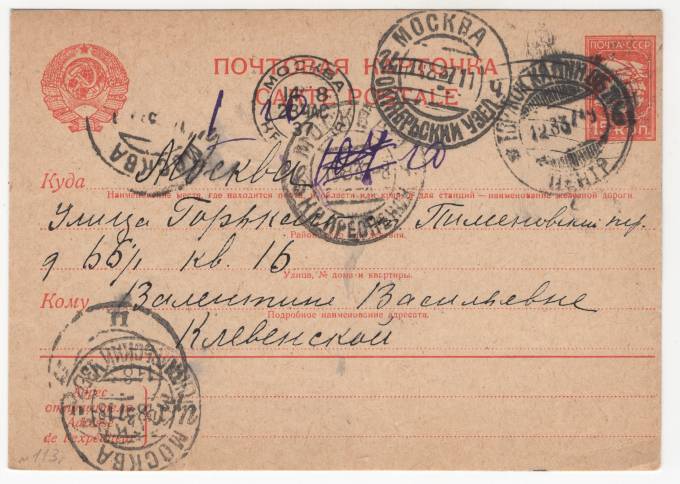 ПОЧТОВАЯ КАРТОЧКА
CARTE POSTALE
ПОЧТА СССР
15 КОП.
МОСКВА
13.8.37 11
ОКТЯБРЬСКИЙ УЗЕЛ
МОСКВА
14 8
37
12.8.37
ЦЕНТР
Куда Москва 10
Наименование места, где находится почта, области или края, а для станций — наименование железной дороги.
Улица Горького Пименовский пер.
Район
д
кв. 16
Улица, № дома и квартиры.
Кому Валентине Васильевне
Подробное наименование адресата.
Клевенской
МОСКВА
Адрес
отправителя
Adresse
de l'expéditeur